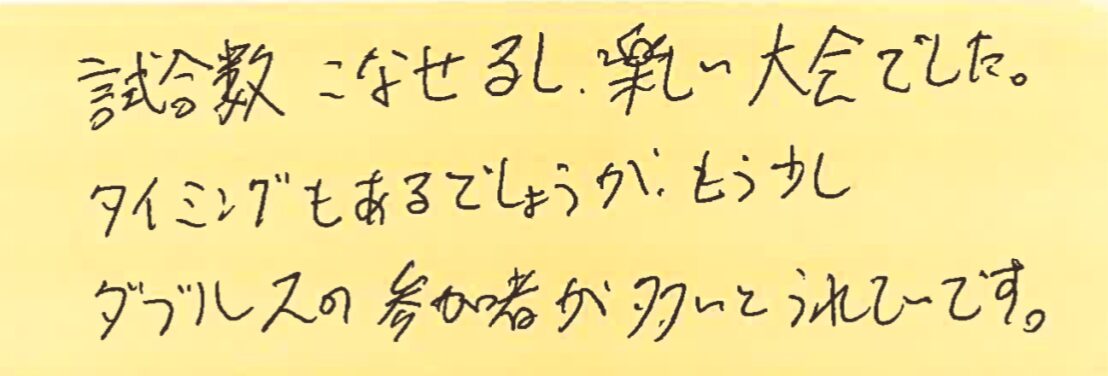 試合数こなせるし、楽しい大会でした。
タイミングもあるでしょうが、もう少し
ダブルスの参加者が多いとうれしいです。